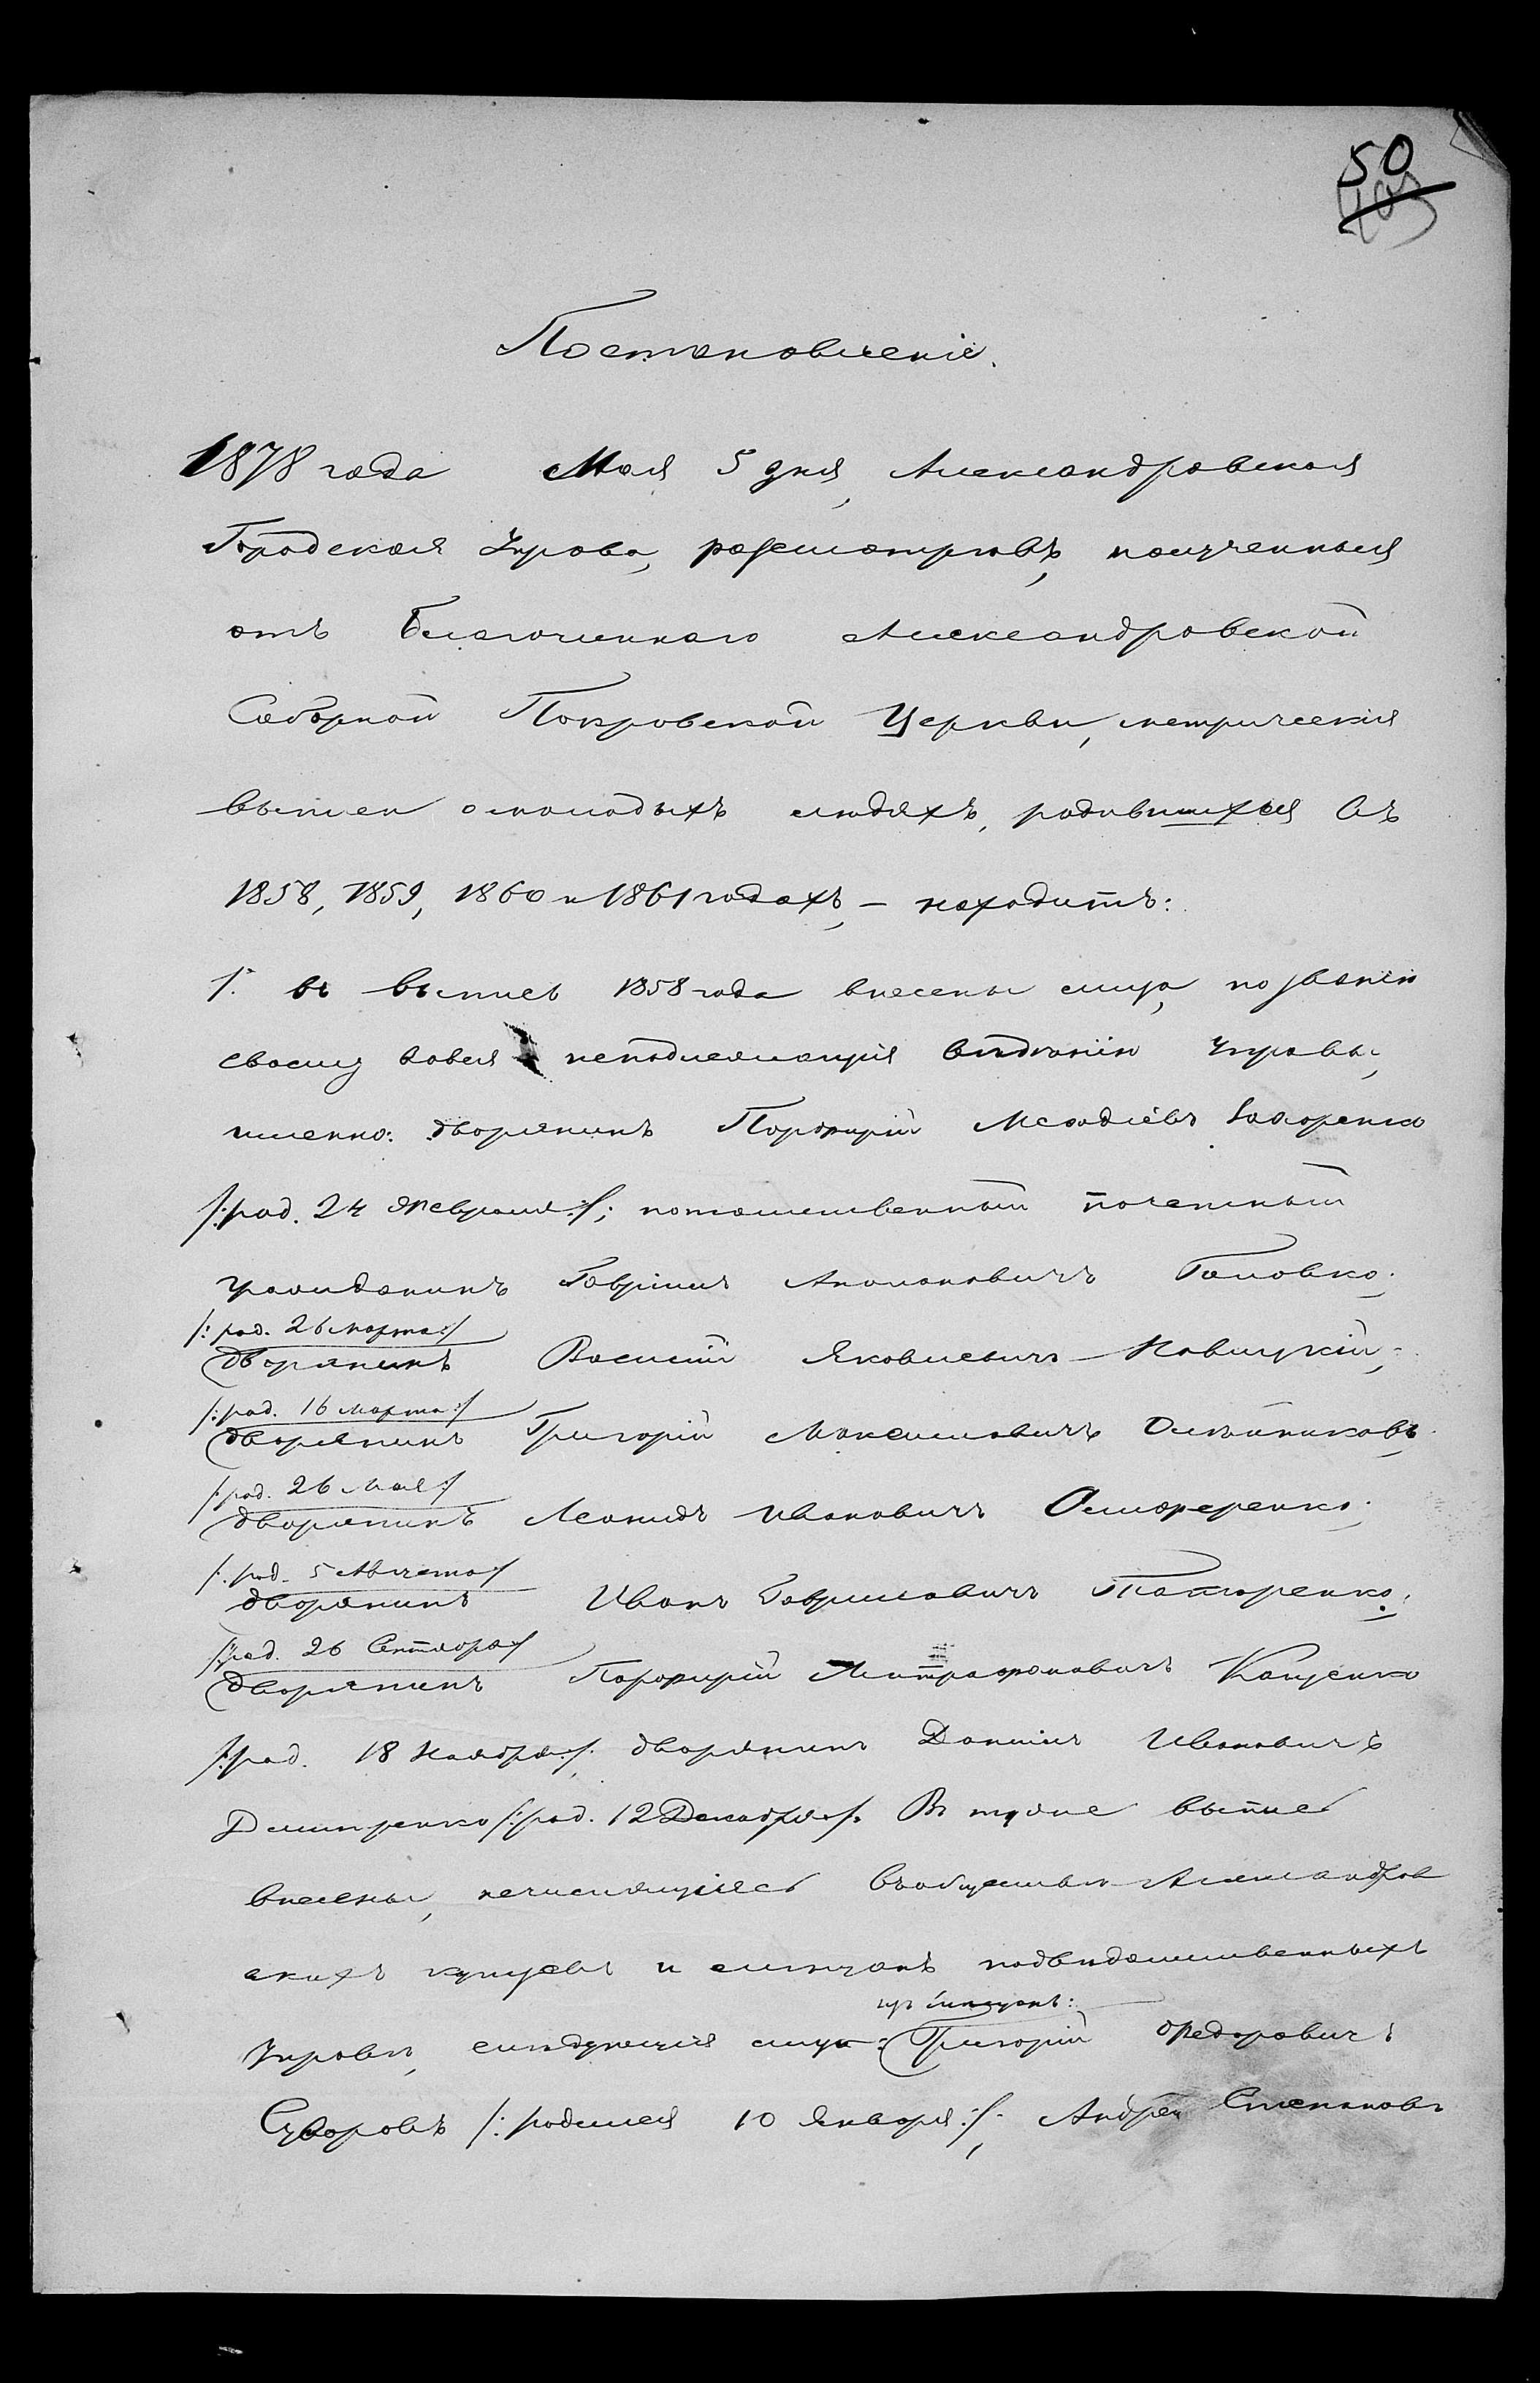 50
Постановленіе.
1878 года Мая 5 дня, Александровская
Городская Управа, разсмотрѣвъ, полученныя
отъ Благочиннаго Александровской
Соборной Покровской Церкви, метрическія
выписи о молодыхъ людяхъ, родившихся въ
1858, 1859, 1860 и 1861 годахъ, — находитъ:
1. въ выпись 1858 года внесены лица, по званію
своему вовся неподлежащія вѣдѣнію Управы,
именно: дворянинъ Порфирій Меѳодіевъ Захоренко
/: род. 24 Февраля :/; потомственный почетный
гражданинъ Гавріилъ Головко;
/: род. 26 марта :/
дворянинъ Василій Яковлевичъ Новицкій;
/: род. 16 марта :/
дворянинъ Григорій Максимовичъ Олейниковъ
/: род. 26 Мая :/
дворянинъ Леонидъ Ивановичъ
/: род. 5 Августа :/
дворянинъ Иванъ Гавриловичъ
/: род. 26 Сентября :/
дворянинъ Порфирій Митрофановичъ Кащенко
/: род. 18 Ноября :/; дворянинъ Даніилъ Ивановичъ
Дмитренко /: род. 12 Декабря :/. В туже выпись
внесены, нечислящіеся въ обществѣ Александров
скихъ купцовъ и мѣщанъ подвѣдомственныхъ
изъ мѣщанъ:
Управѣ, слѣдующія лица: Григорій Федоровичъ
Суворовъ /: родился 10 Января :/; Андрей Степановъ